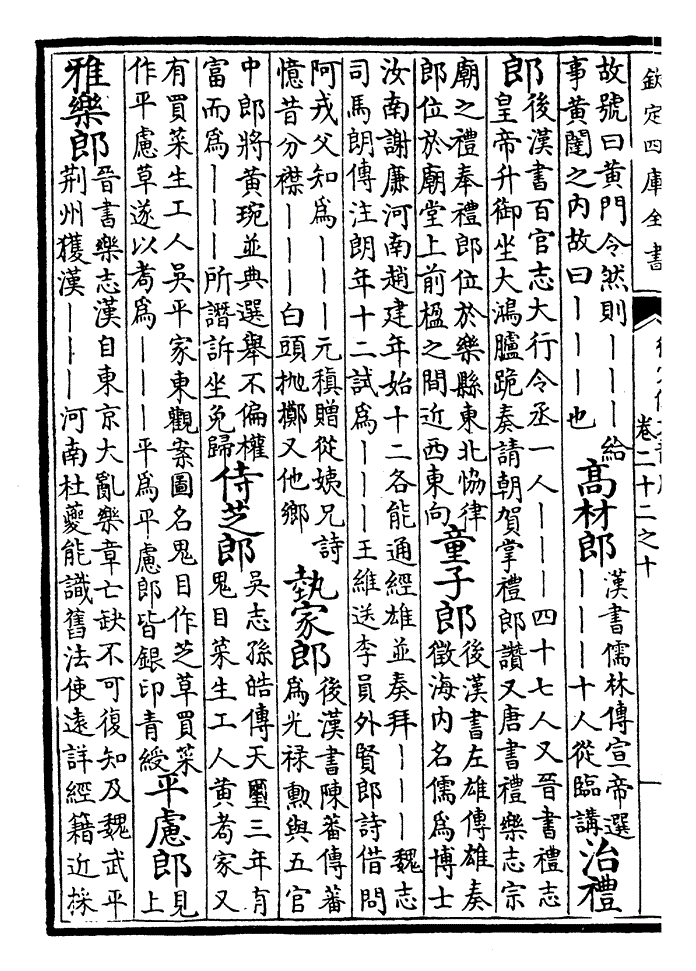 欽定四庫全書
卷二十二之十
故號曰黄門令然則丨丨丨給
事黄闥之内故曰丨丨丨也
高材郎
漢書儒林傳宣帝選
丨丨丨十人從臨講
治禮
郎
後漢書百官志大行令丞一人丨丨丨四十七人又晉書禮志
皇帝升御坐大鴻臚跪奏請朝賀掌禮郎讚又唐書禮樂志宗
廟之禮奉禮郎位於樂縣東北協律
郎位於廟堂上前楹之間近西東向
童子郎
後漢書左雄傳雄奏
徵海内名儒為博士
汝南謝廉河南趙建年始十二各能通經雄並奏拜丨丨丨魏志
司馬朗傳注朗年十二試為丨丨丨王維送李員外賢郎詩借問
阿戎父知為丨丨丨元稹贈從姨兄詩
憶昔分襟丨丨丨白頭抛擲又他鄉
埶家郎
後漢書陳蕃傳蕃
為光禄勲與五官
中郎將黄琬並典選舉不偏權
富而為丨丨丨所譖訴坐免歸
侍芝郎
吳志孫皓傳天璽三年有
鬼目菜生工人黄耉家又
有買菜生工人吳平家東觀案圖名鬼目作芝草買菜
作平慮草遂以耉為丨丨丨平為平慮郎皆銀印青綬
平慮郎
見
上
雅樂郎
晉書樂志漢自東京大亂樂章亡缺不可復知及魏武平
荆州獲漢丨丨丨河南杜夔能識舊法使逺詳經籍近採